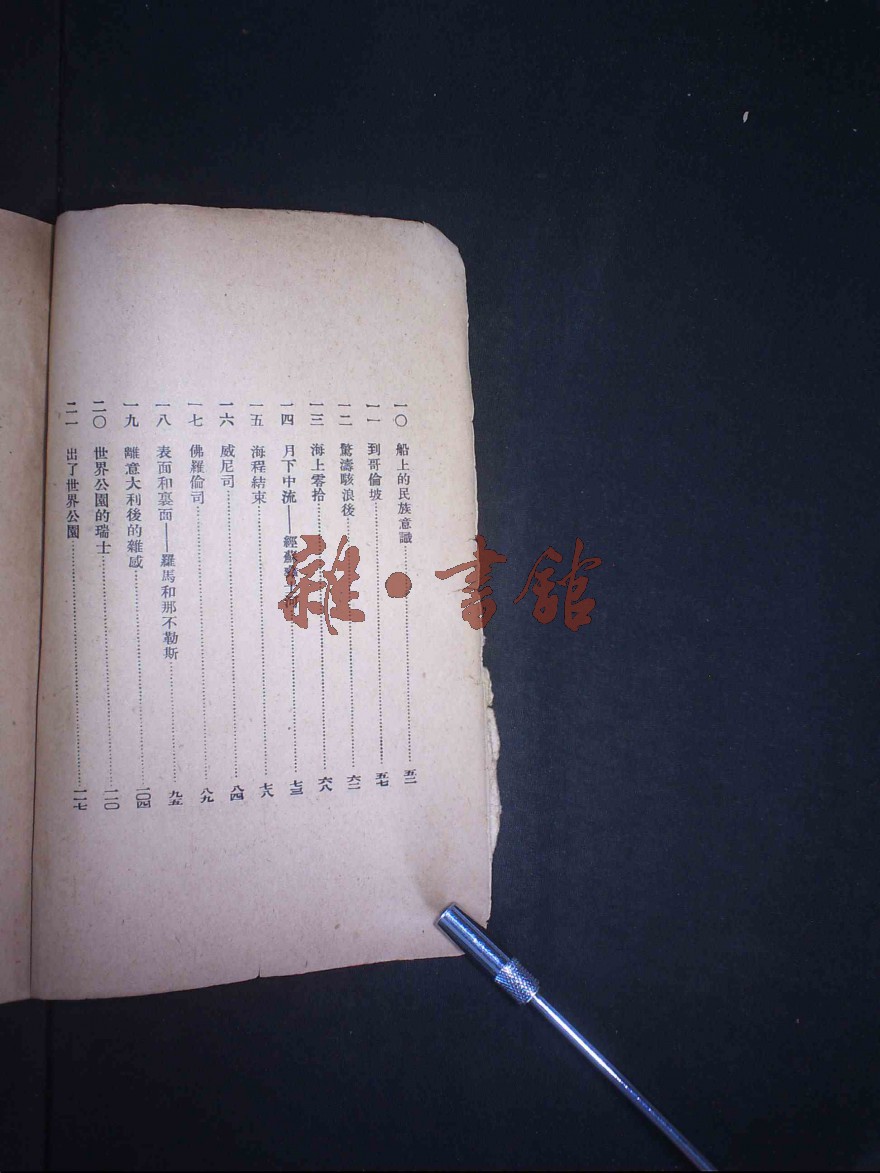 一〇 船上的民族意識 五二
一一 到哥倫坡 五七
一二 驚濤駭浪後 六二
一三 海上零拾 六八
一四 月下中流——經蘇 河 七三
一五 海程結束 七八
一六 威尼司 八四
一七 佛羅倫司 八九
一八 表面和裏面——羅馬和那不勒斯 九五
一九 離意大利後的雜感 一〇四
二〇 世界公園的瑞士 一一〇
二一 出了世界公園 一一七
雜·書館